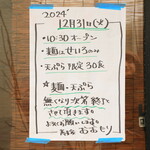 2024'
12月31日(火)
・10:30 オープン
・麺はせいろのみ
・天ぷら 限定 30食
★麺・天ぷら
無くなり次第 終了と
させて頂きます。
よろしくお願いします。